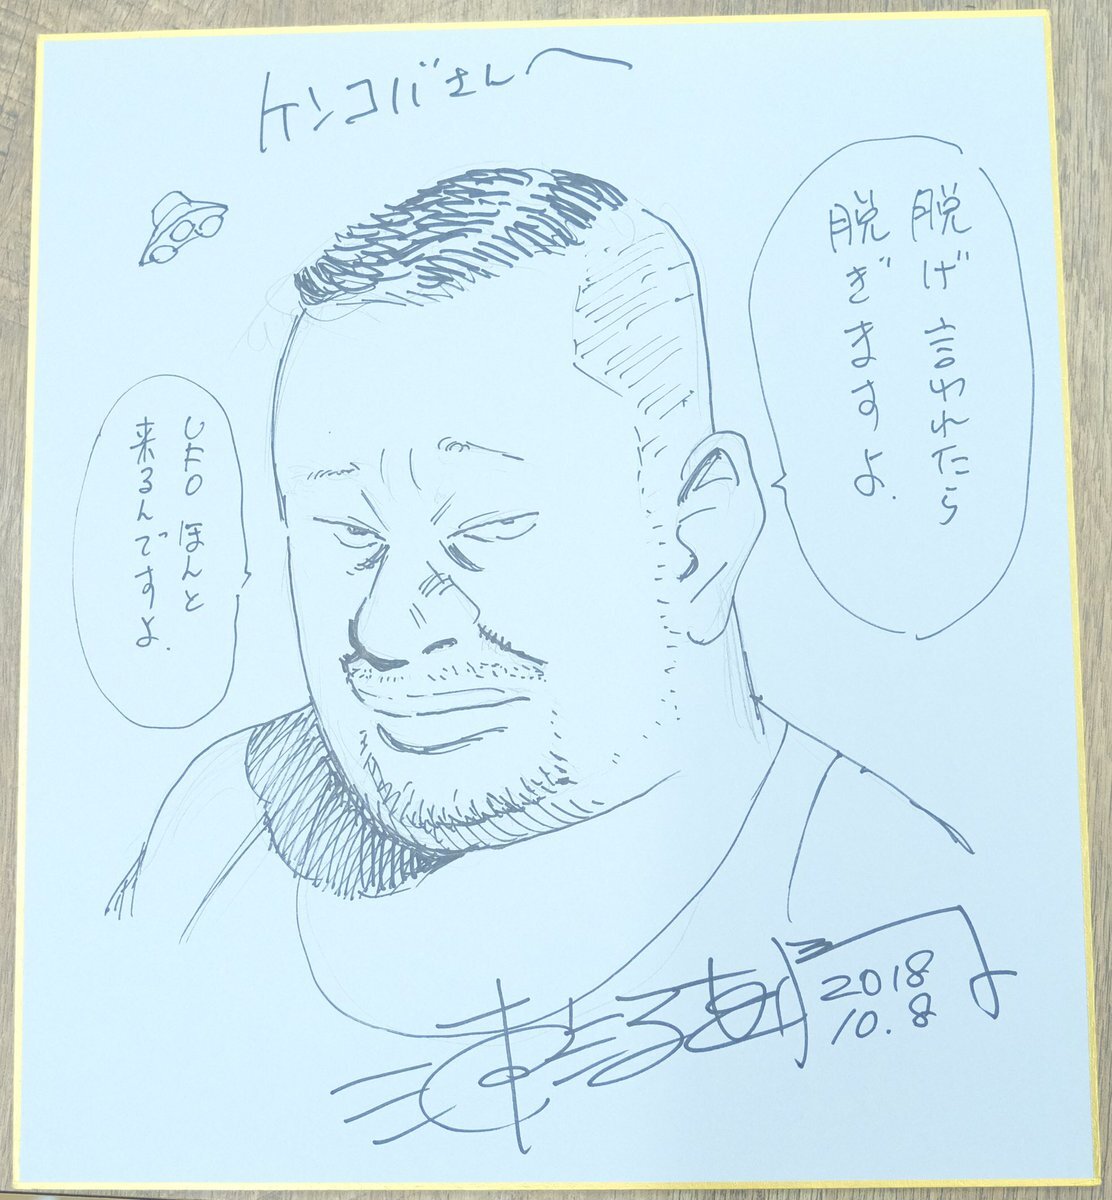 ケンコバさんへ
脱げ言われたら
脱ぎますよ.
UFOほんと
来るんですよ.
2018
10.8